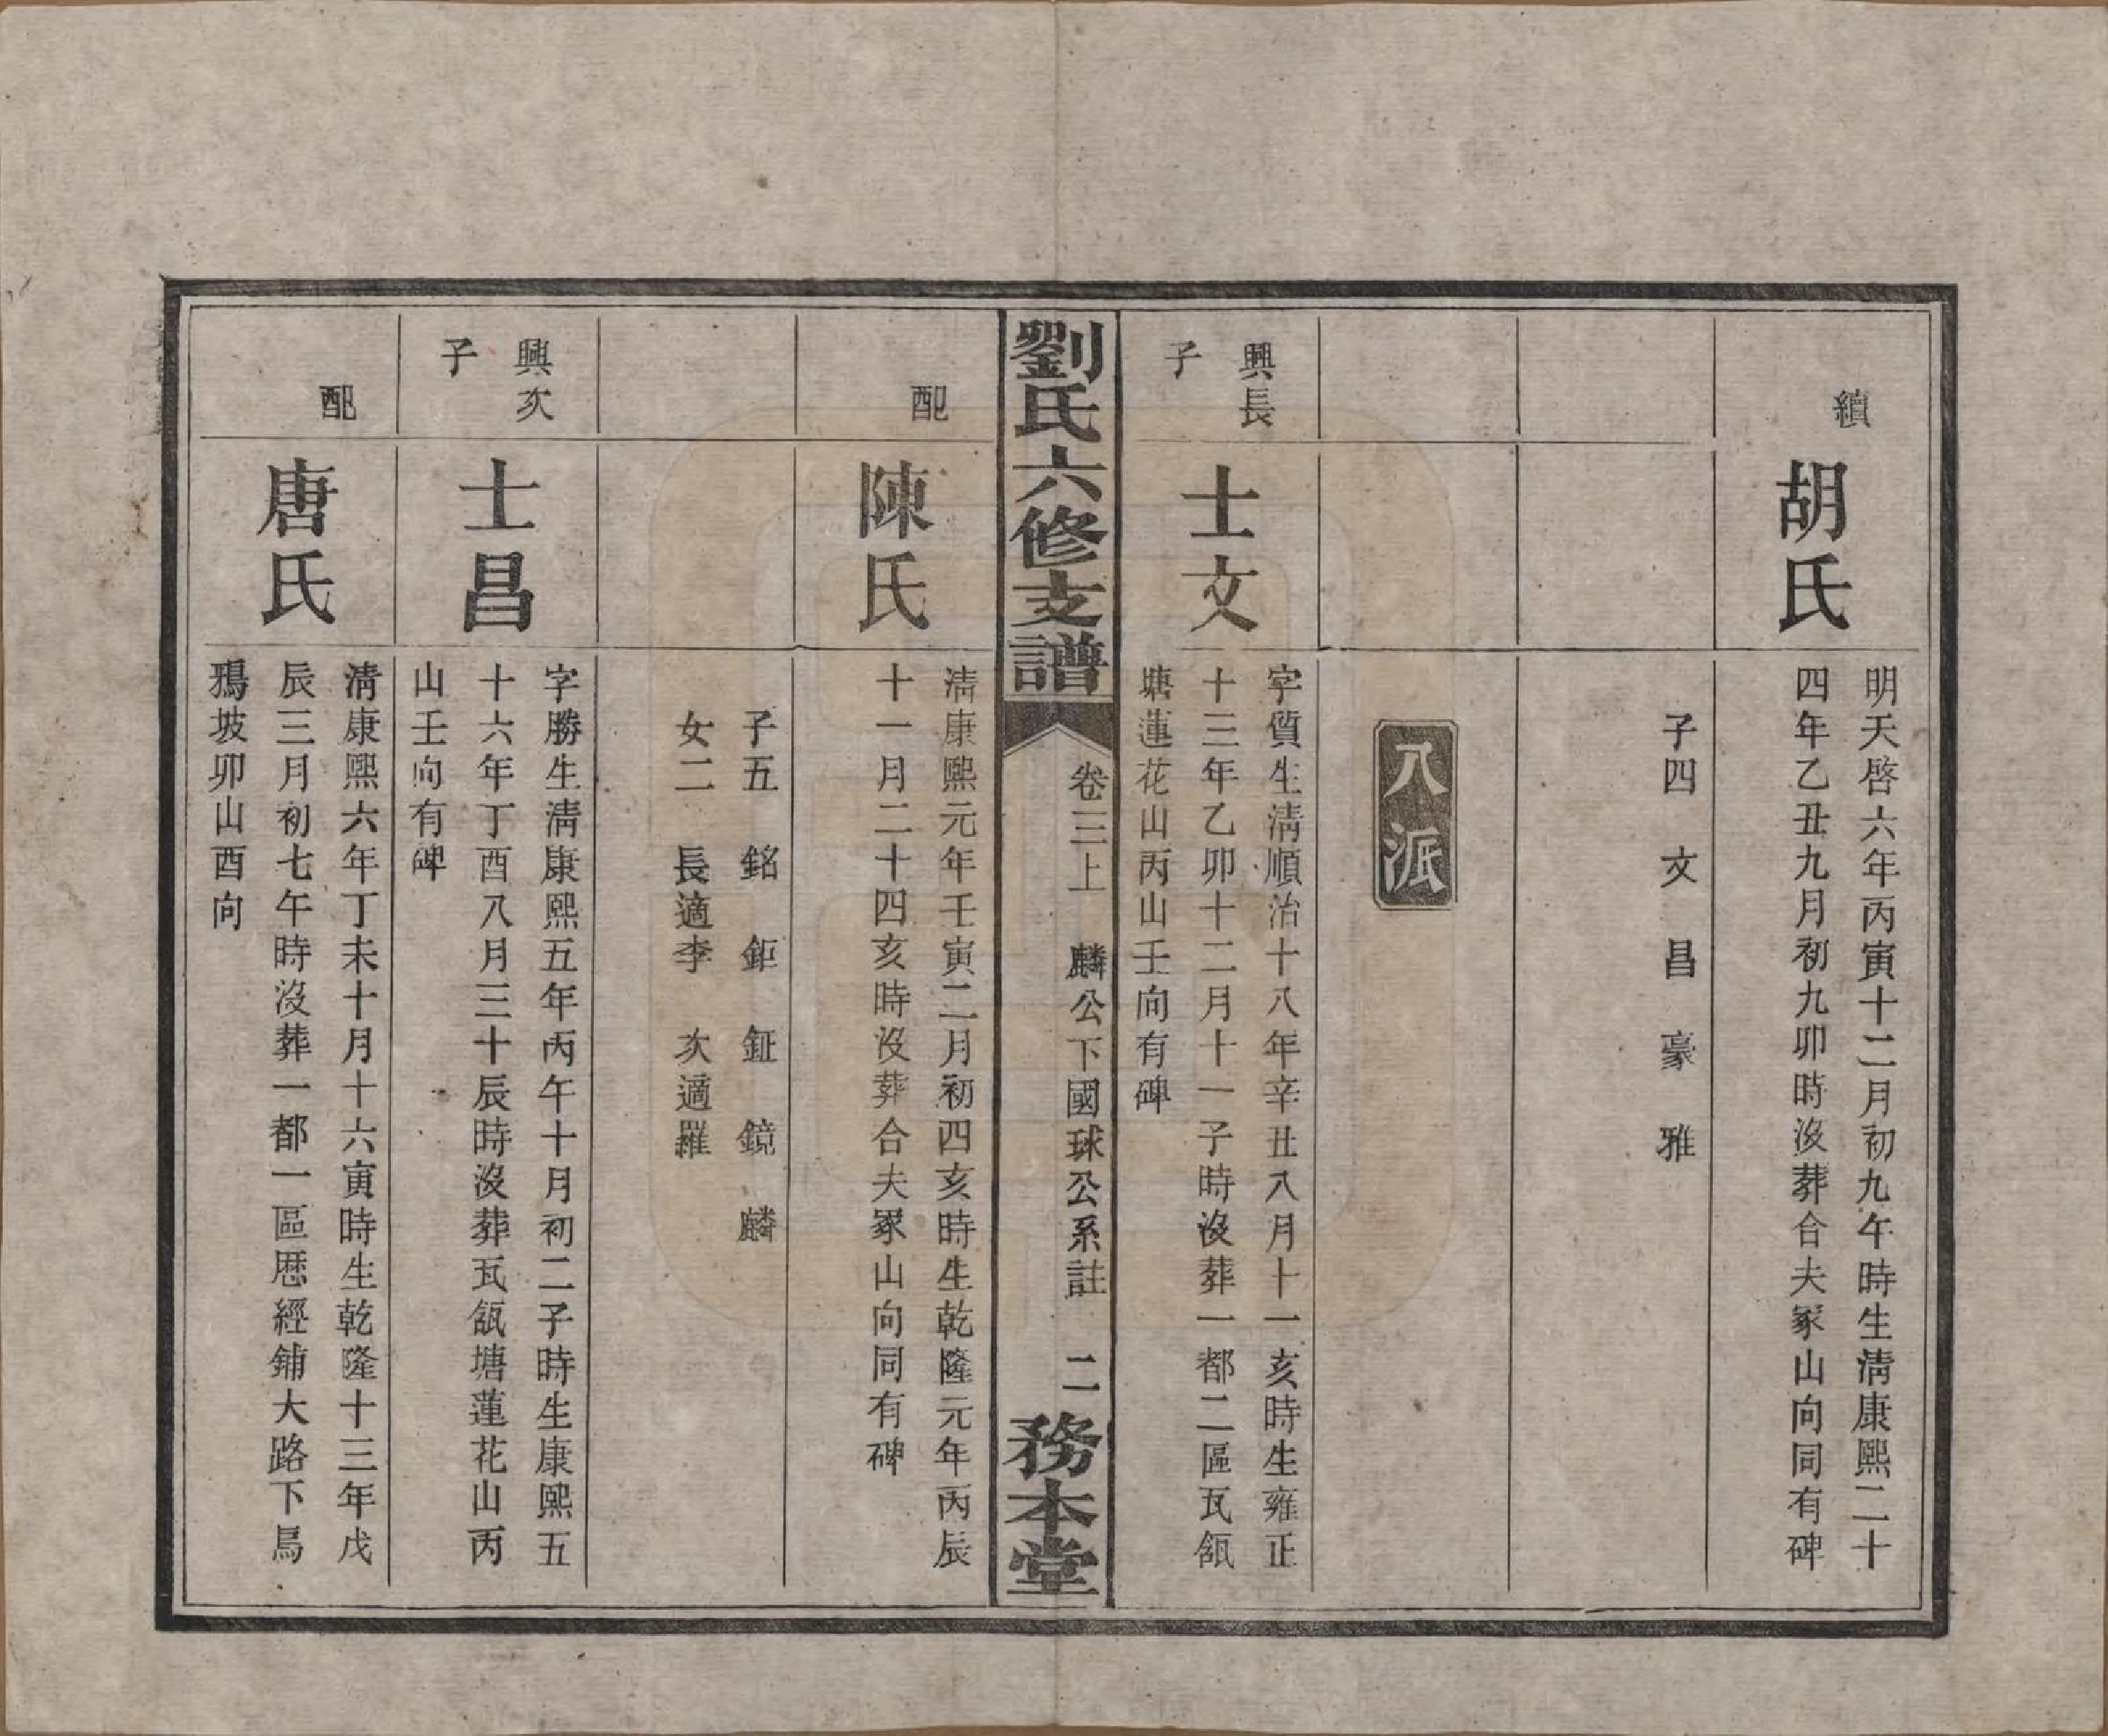 續
胡氏
明天啓六年丙寅十二月初九午時生淸康熙二十
四年乙丑九月初九卯時沒葬合夫冢山向同有碑
子四　文　昌　豪　雅
八派
興長
子
士文
字質生淸順治十八年辛丑八月十一亥時生雍正
十三年乙卯十二月十一子時沒葬一都二區瓦瓴
塘蓮花山丙山壬向有碑
劉氏六修支譜
卷三上　麟公下國球公系註　二
務本堂
配
陳氏
淸康熙元年壬寅二月初四亥時生乾隆元年丙辰
十一月二十四亥時沒葬合夫冢山向同有碑
子五　銘　鉅　鉦　鏡　麟
女二　長適李　次適羅
興次
子
士昌
字勝生淸康熙五年丙午十月初二子時生康熙五
十六年丁酉八月三十辰時沒葬瓦瓴塘蓮花山丙
山壬向有碑
配
唐氏
淸康熙六年丁未十月十六寅時生乾隆十三年戊
辰三月初七午時沒葬一都一區厯經鋪大路下烏
鴉坡卯山酉向